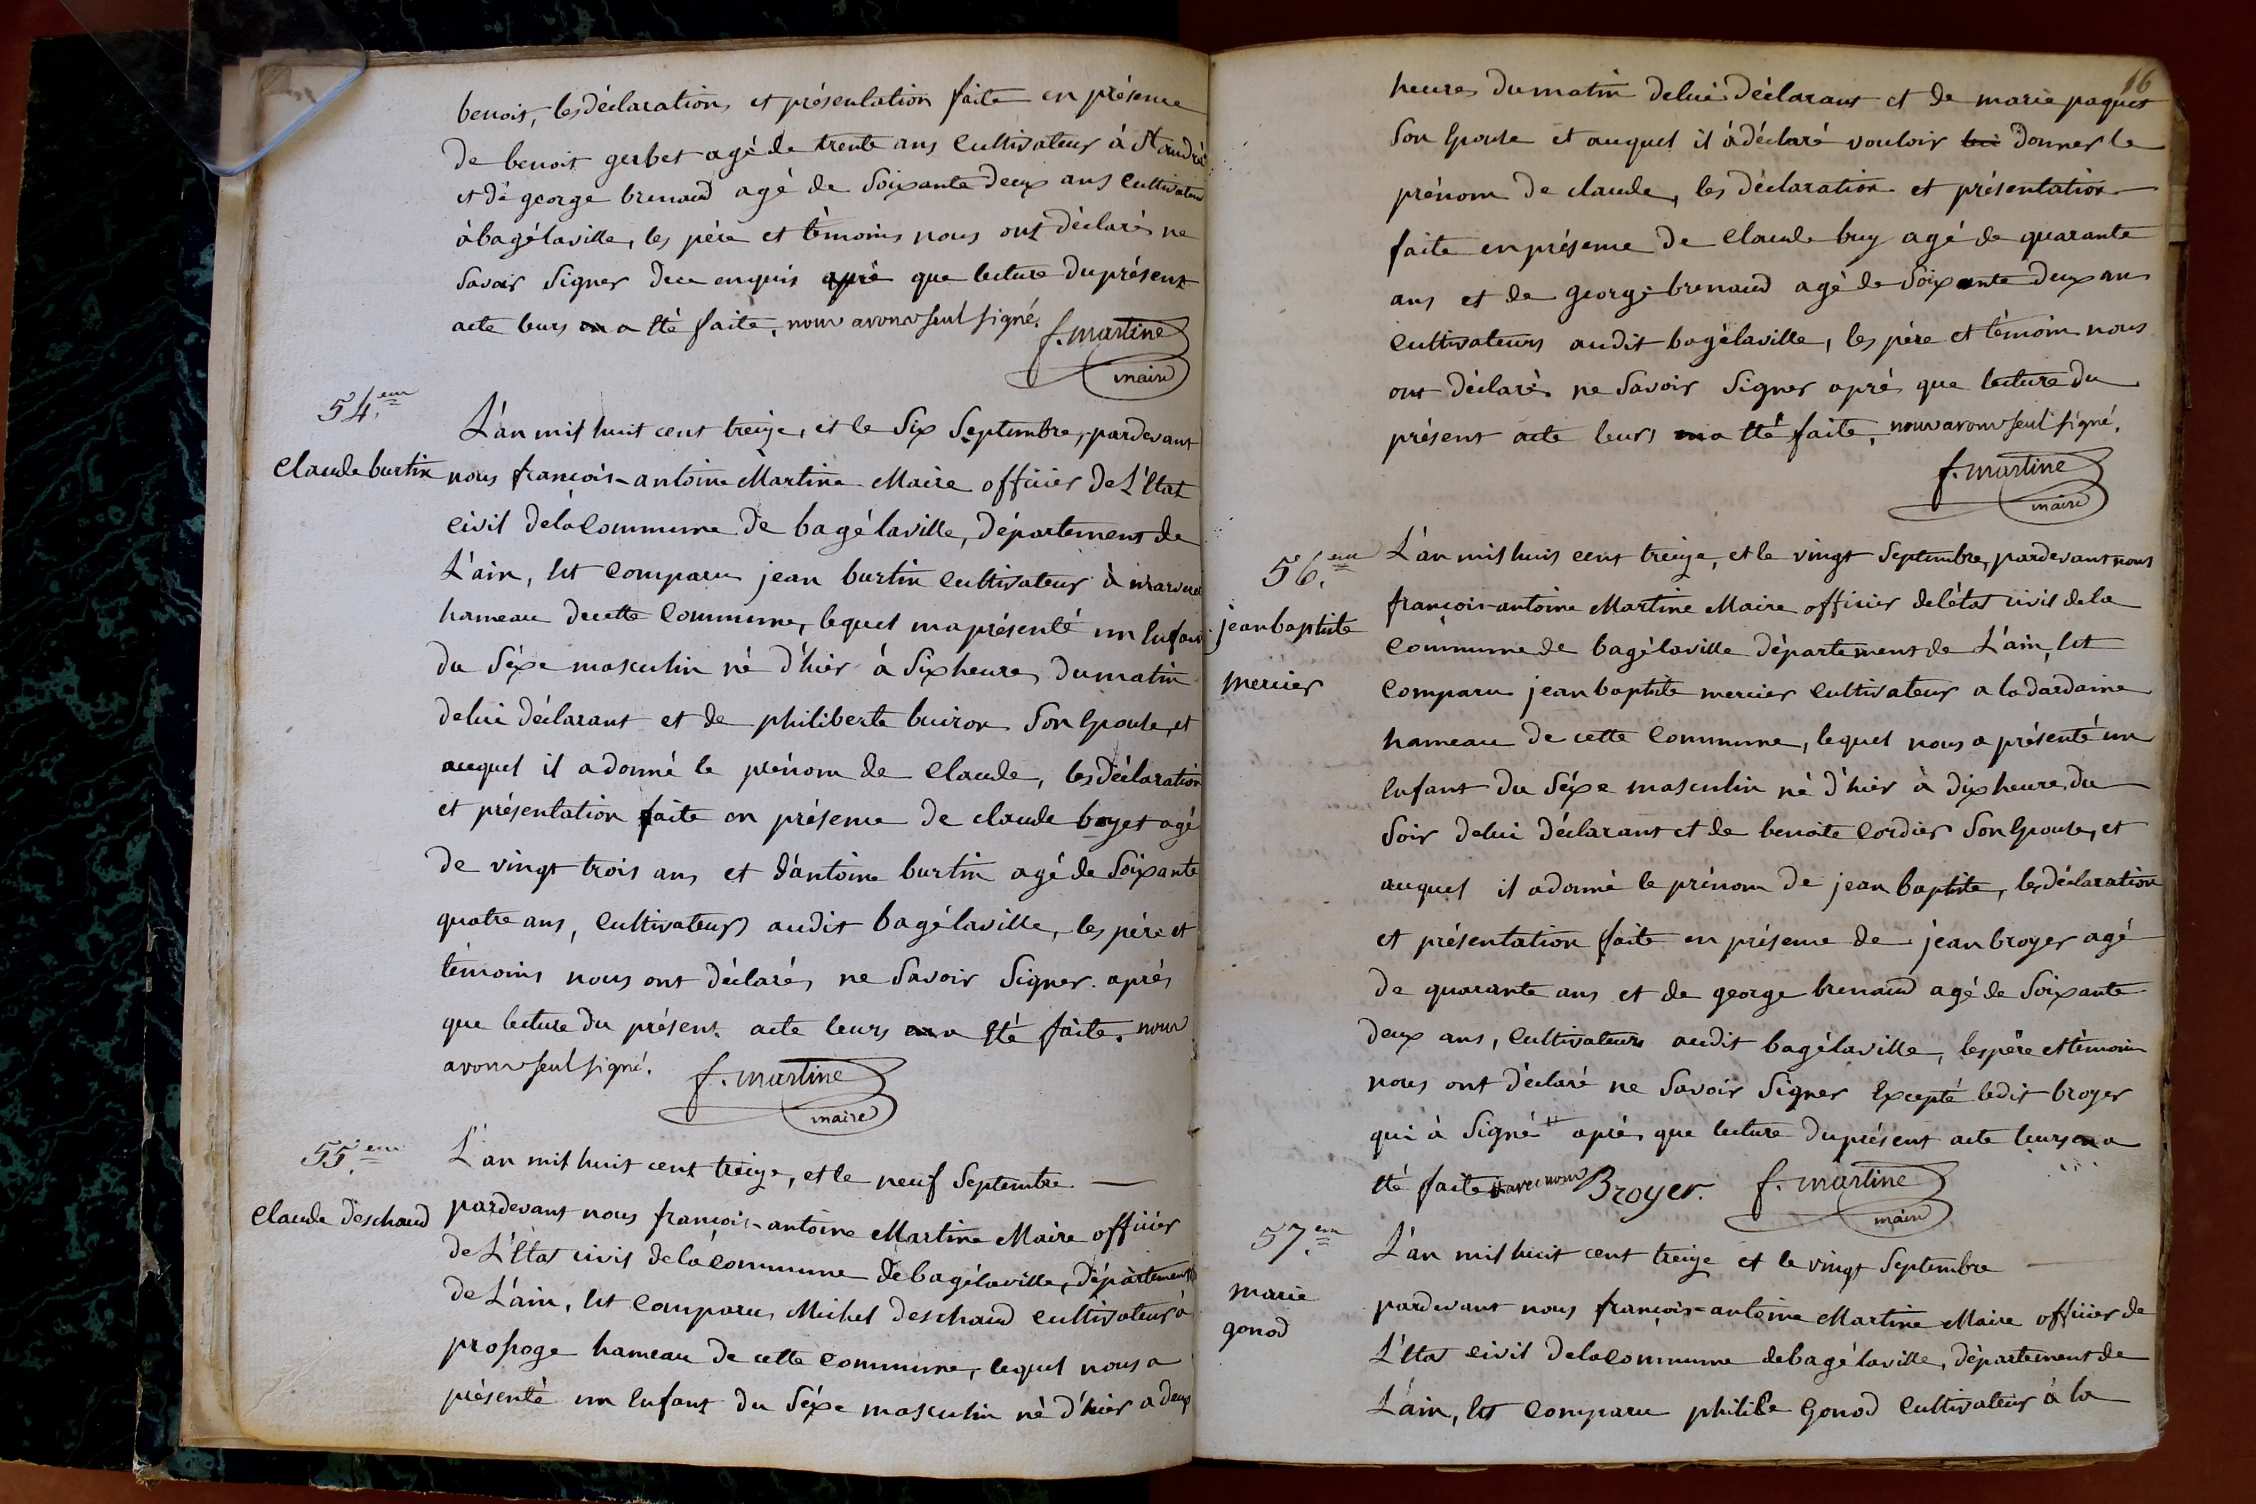 benoit, les déclaration, et présentation faite en présence
de benoit gerbet agé de trente ans Cultivateur à St andré
et de george brenaud agé de Soixante deux ans Cultivateur
à bagélaville, les père et témoins nous ont déclarés ne
Savoir Signer de ce enquis après que lecture du présent
acte leurs en a Eté faite, nous avons seul signé.
f. martine
maire
54.eme
Claude burtin
L'an mil huit cent treize, et le Six Septembre, pardevant
nous françois-antoine Martine Maire officier de L'Etat
Civil de la Commune de bagélaville, Département de
L'ain, Est Comparu jean burtin Cultivateur à
hameau de cette Commune, lequel m'a présenté un Enfant
du Séxe masculin né d'hier à Six heures du matin
de lui déclarant et de philiberte buiron Son Epouse, et
auquel il a donné le prénom de Claude, les déclaration
et présentation faite en présence de claude boyet agé
de vingt trois ans et d'antoine burtin agé de Soixante
quatre ans, Cultivateurs audit bagélaville, les père et
témoins nous ont déclarés ne Savoir Signer. après
que lecture du présent acte leurs en a Eté faite. nous
avons seul signé.
f. martine
maire
55.eme
Claude Deschaud
L'an mil huit cent treize, et le neuf Septembre
pardevant nous françois-antoine Martine Maire officier
de L'Etat civil de la Commune de bagélaville, Département
de L'ain, Est Comparu Michel Deschaud Cultivateur à
hameau de cette Commune, lequel nous a
présenté un Enfant du Séxe masculin né d'hier a deux
16
heures du matin de lui déclarant et de marie paquet
Son Epouse et auquel il à déclaré vouloir lui Donner le
prénom de claude, les déclaration et présentation
faite en présence de Claude buy agé de quarante
ans et de george brenaud agé de Soixante deux ans
Cultivateurs audit bagélaville, les père et témoin nous
ont déclarés ne Savoir Signer après que lecture du
présent acte leurs en a Eté faite, nous avons seul signé.
f. martine
maire
56.eme
jean baptiste
mercier
L'an mil huit cent treize, et le vingt Septembre, pardevant nous
françois-antoine Martine Maire officier de l'état civil de la
Commune de bagélaville département de L'ain, Est
Comparu jean baptiste mercier Cultivateur a la dardaine
hameau de cette Commune, lequel nous a présenté un
Enfant du Séxe masculin né d'hier à dix heures du
Soir de lui déclarant et de benoite Cordier Son Epouse, et
auquel il a donné le prénom de jean baptiste, les déclaration
et présentation faite en présence de jean broyer agé
de quarante ans et de george brenaud agé de Soixante
deux ans, Cultivateurs audit bagélaville, les père et témoin
nous ont déclaré ne Savoir Signer Excepté ledit broyer
qui à Signé après que lecture du présent acte leurs en a
Eté faite avec nous Broyer. f. martine
maire
57.eme
marie
gonod
L'an mil huit cent treize et le vingt Septembre
pardevant nous françois-antoine Martine Maire officier de
L'Etat Civil de la Commune de bagélaville, département de
L'ain, Est Comparu philibe Gonod Cultivateur à la